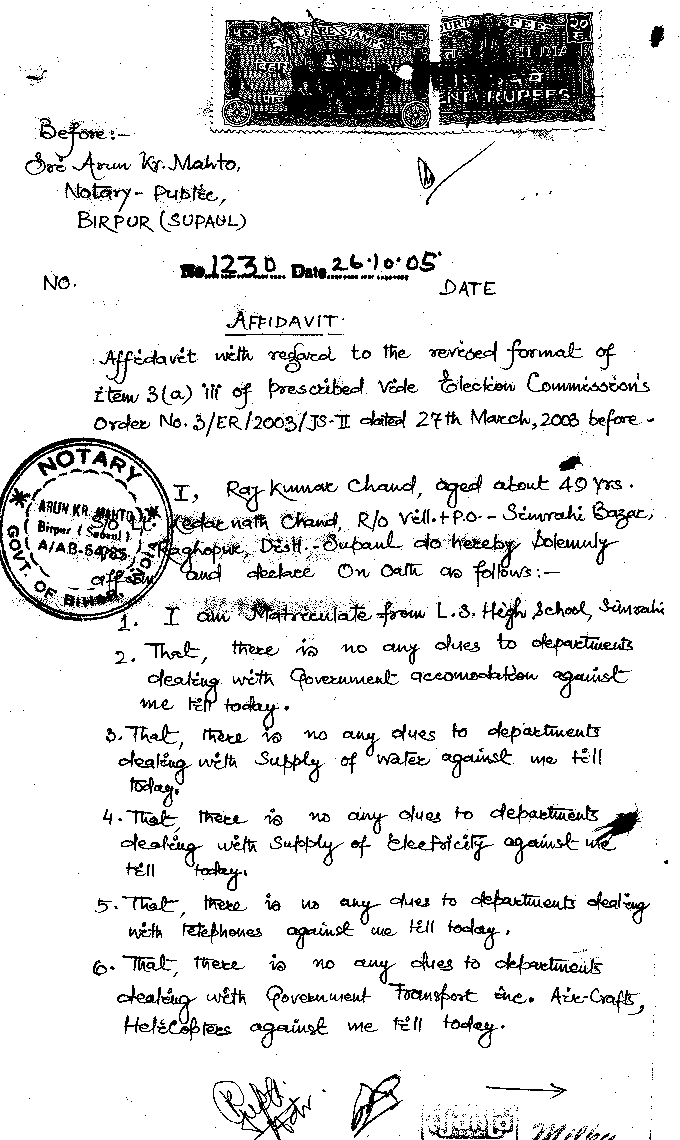 WELFARE STAMP
COURT FEE
RUPEES
Before:-
Sri Arun Kr. Mahto,
Notary- Public,
BIRPUR (SUPAUL)
No. 1230 Date 26.10.05
NO.
DATE
AFFIDAVIT.
Affidavit with regard to the revised format of
item 3(a) iii of prescribed vide Election Commission's
Order No. 3/ER/2003/JS-II dated 27th March, 2003 before-
NOTARY
ARUN KR. MAHTO
Birpur (Supaul)
A/AB-
GOVT. OF BIHAR, INDIA
I, Raj Kumar Chand, aged about 49 Yrs.
S/o Lt. Kedarnath Chand, R/o Vill.+P.O.- Simrahi Bazar,
Raghopur, Distt.- Supaul do hereby Solemnly
affirm and declare On Oath as follows:-
1. I am Matriculate from L.S. High School, Simrahi
2. That, there is no any dues to departments
dealing with Government accomodation against
me till today.
3. That, there is no any dues to departments
dealing with Supply of water against me till
today.
4. That, there is no any dues to departments
dealing with Supply of Electricity against me
till today.
5. That, there is no any dues to departments dealing
with telephones against me till today.
6. That, there is no any dues to departments
dealing with Government Transport inc. Air-Crafts,
Helicopters against me till today.